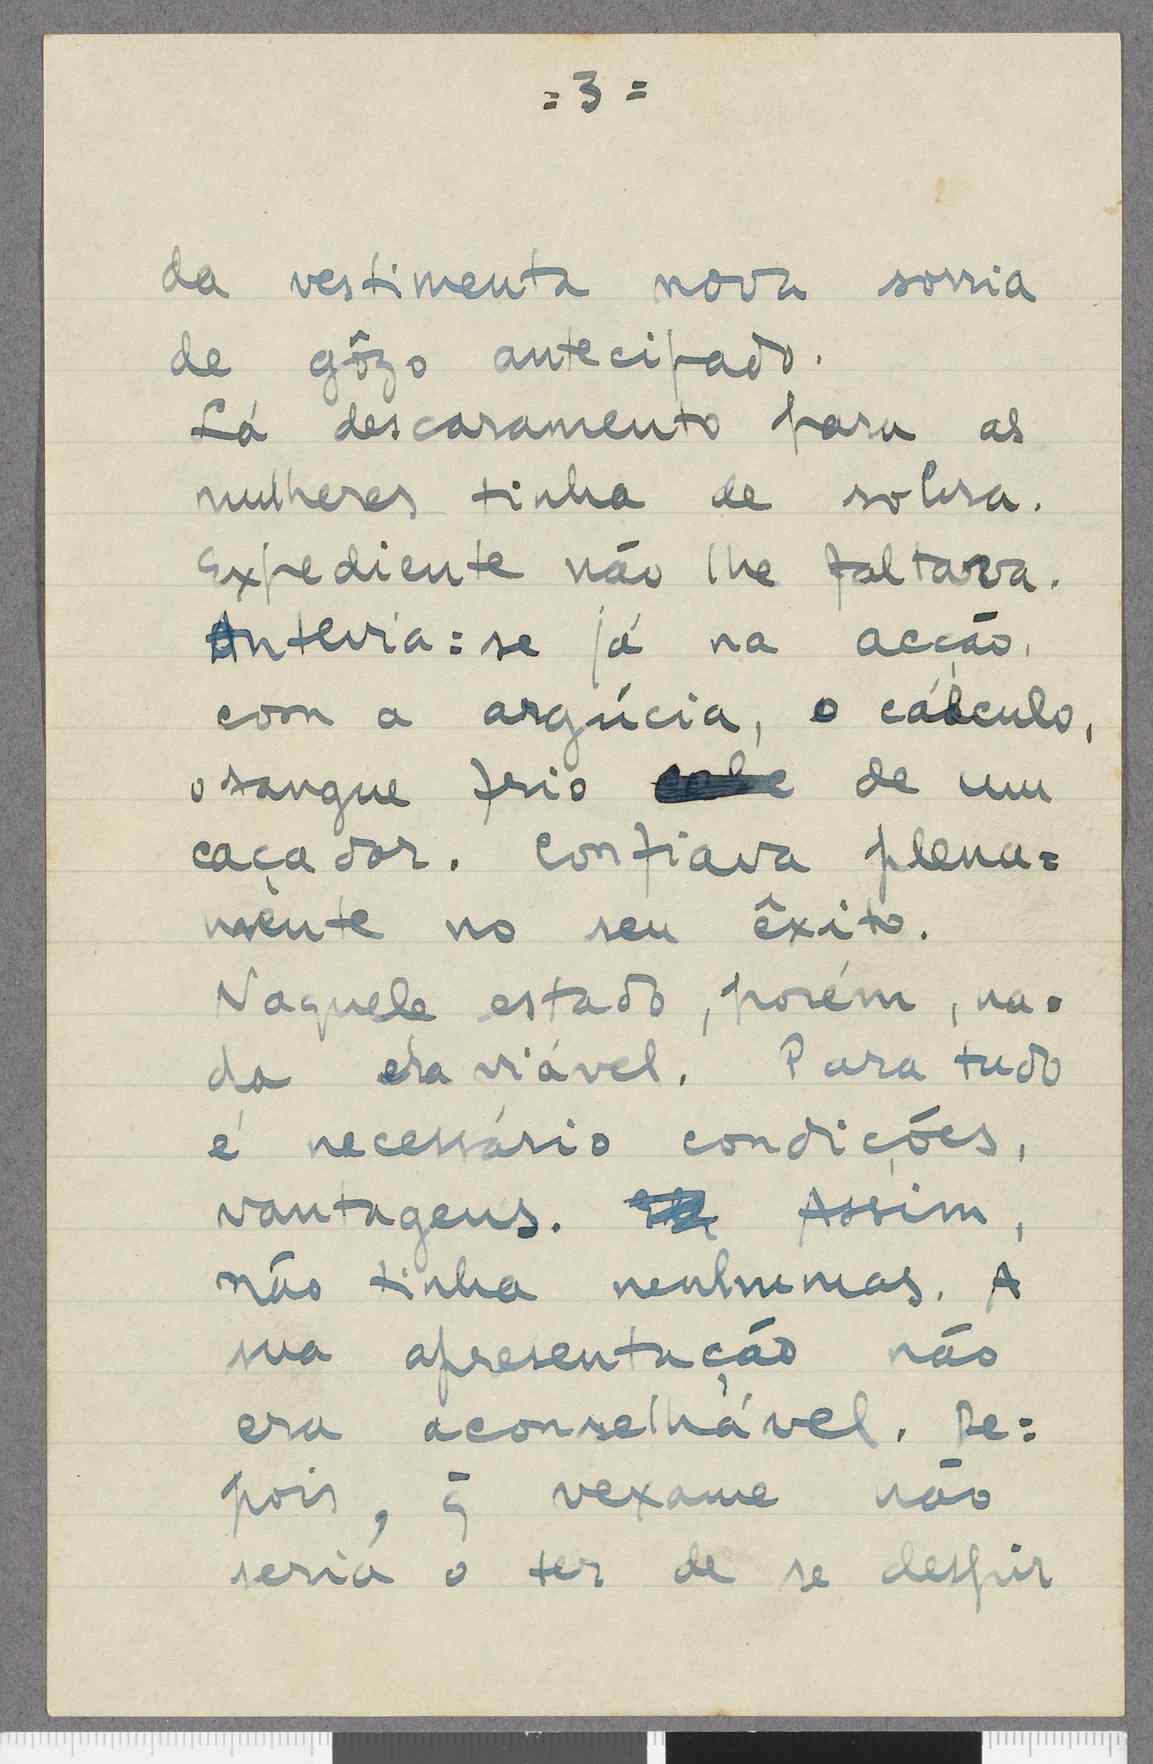 = 3 =
da vestimenta nova sorria
de gôzo antecipado.
Lá descaramento para as
mulheres tinha de sobra.
Expediente não lhe faltava.
Antevia=se já na acção,
com a argúcia, o cálculo,
o sangue frio de um
caçador. Confiava plena=
mente no seu êxito.
Naquele estado, porém, na=
da era viável. Para tudo
é necessário condições,
vantagens. Assim,
não tinha nenhumas. A
sua apresentação não
era aconselhável. De=
pois, q̄ vexame não
seria o ter de se despir